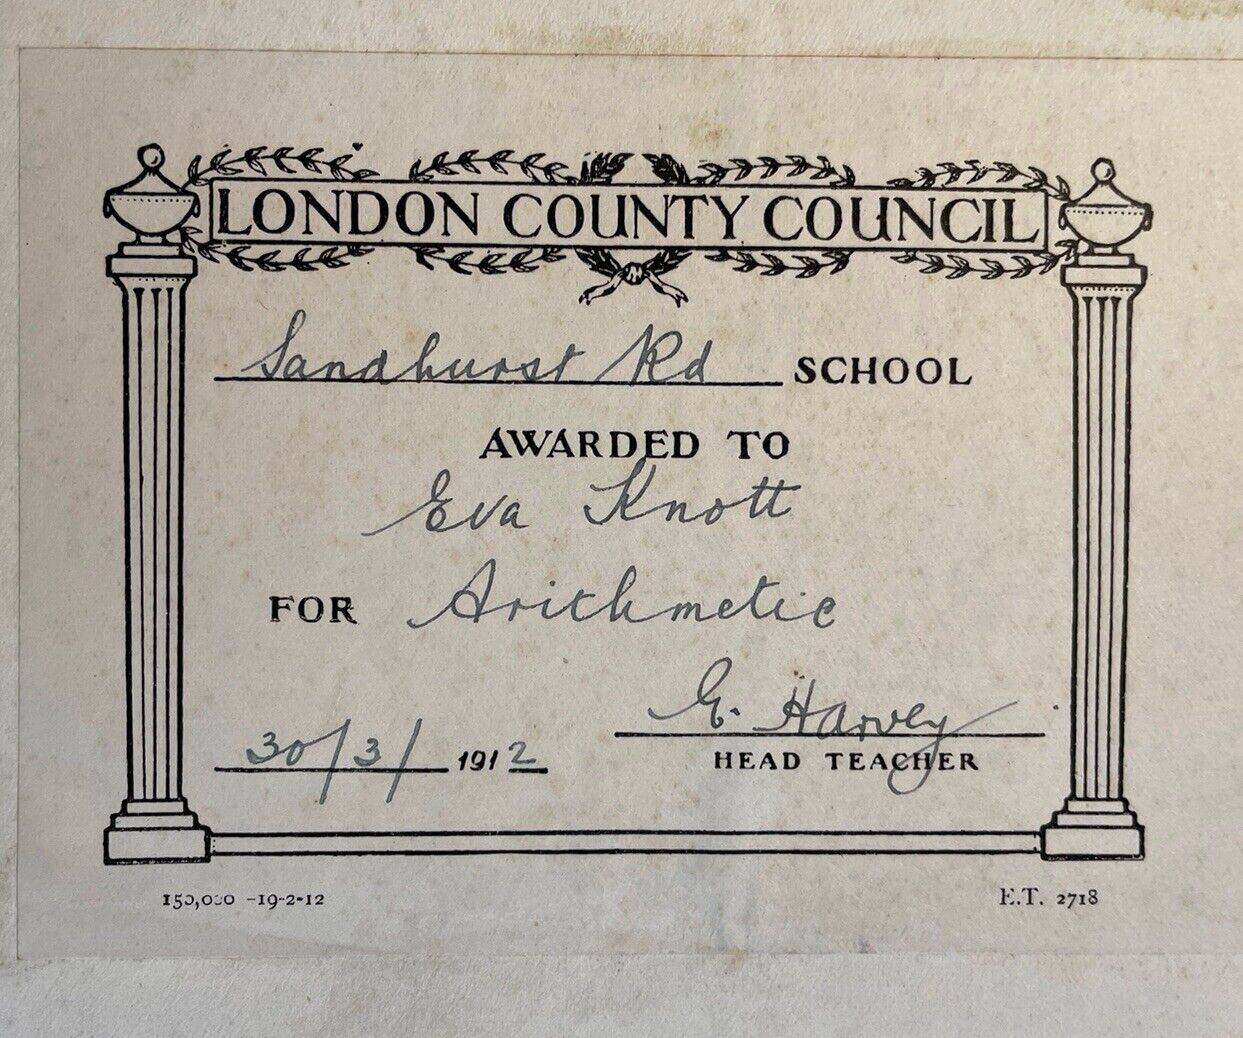 LONDON COUNTY COUNCIL
Sandhurst Rd SCHOOL
AWARDED TO
Eva Knott
FOR Arithmetic
E. Harvey
30/3/ 1912
HEAD TEACHER
150,000 -19-2-12
E.T. 2718